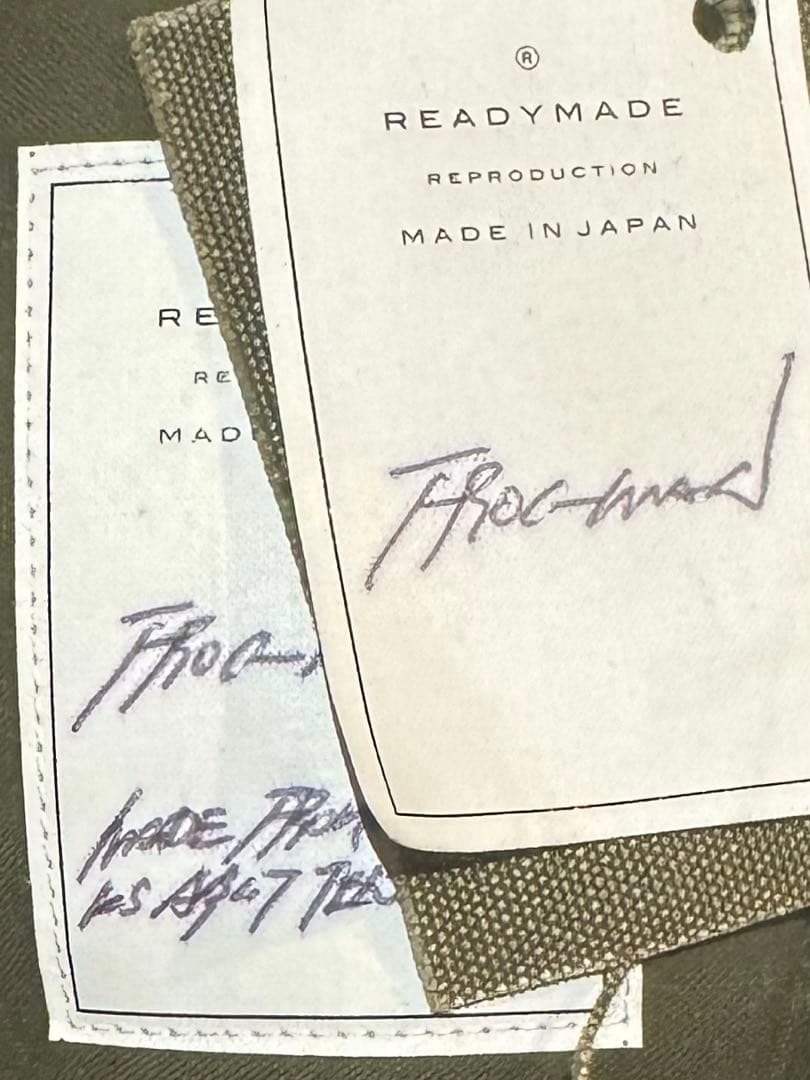 ®
READYMADE
REPRODUCTION
MADE IN JAPAN
FROGMAN
RE
RE
MAD
FROG
MADE FROM